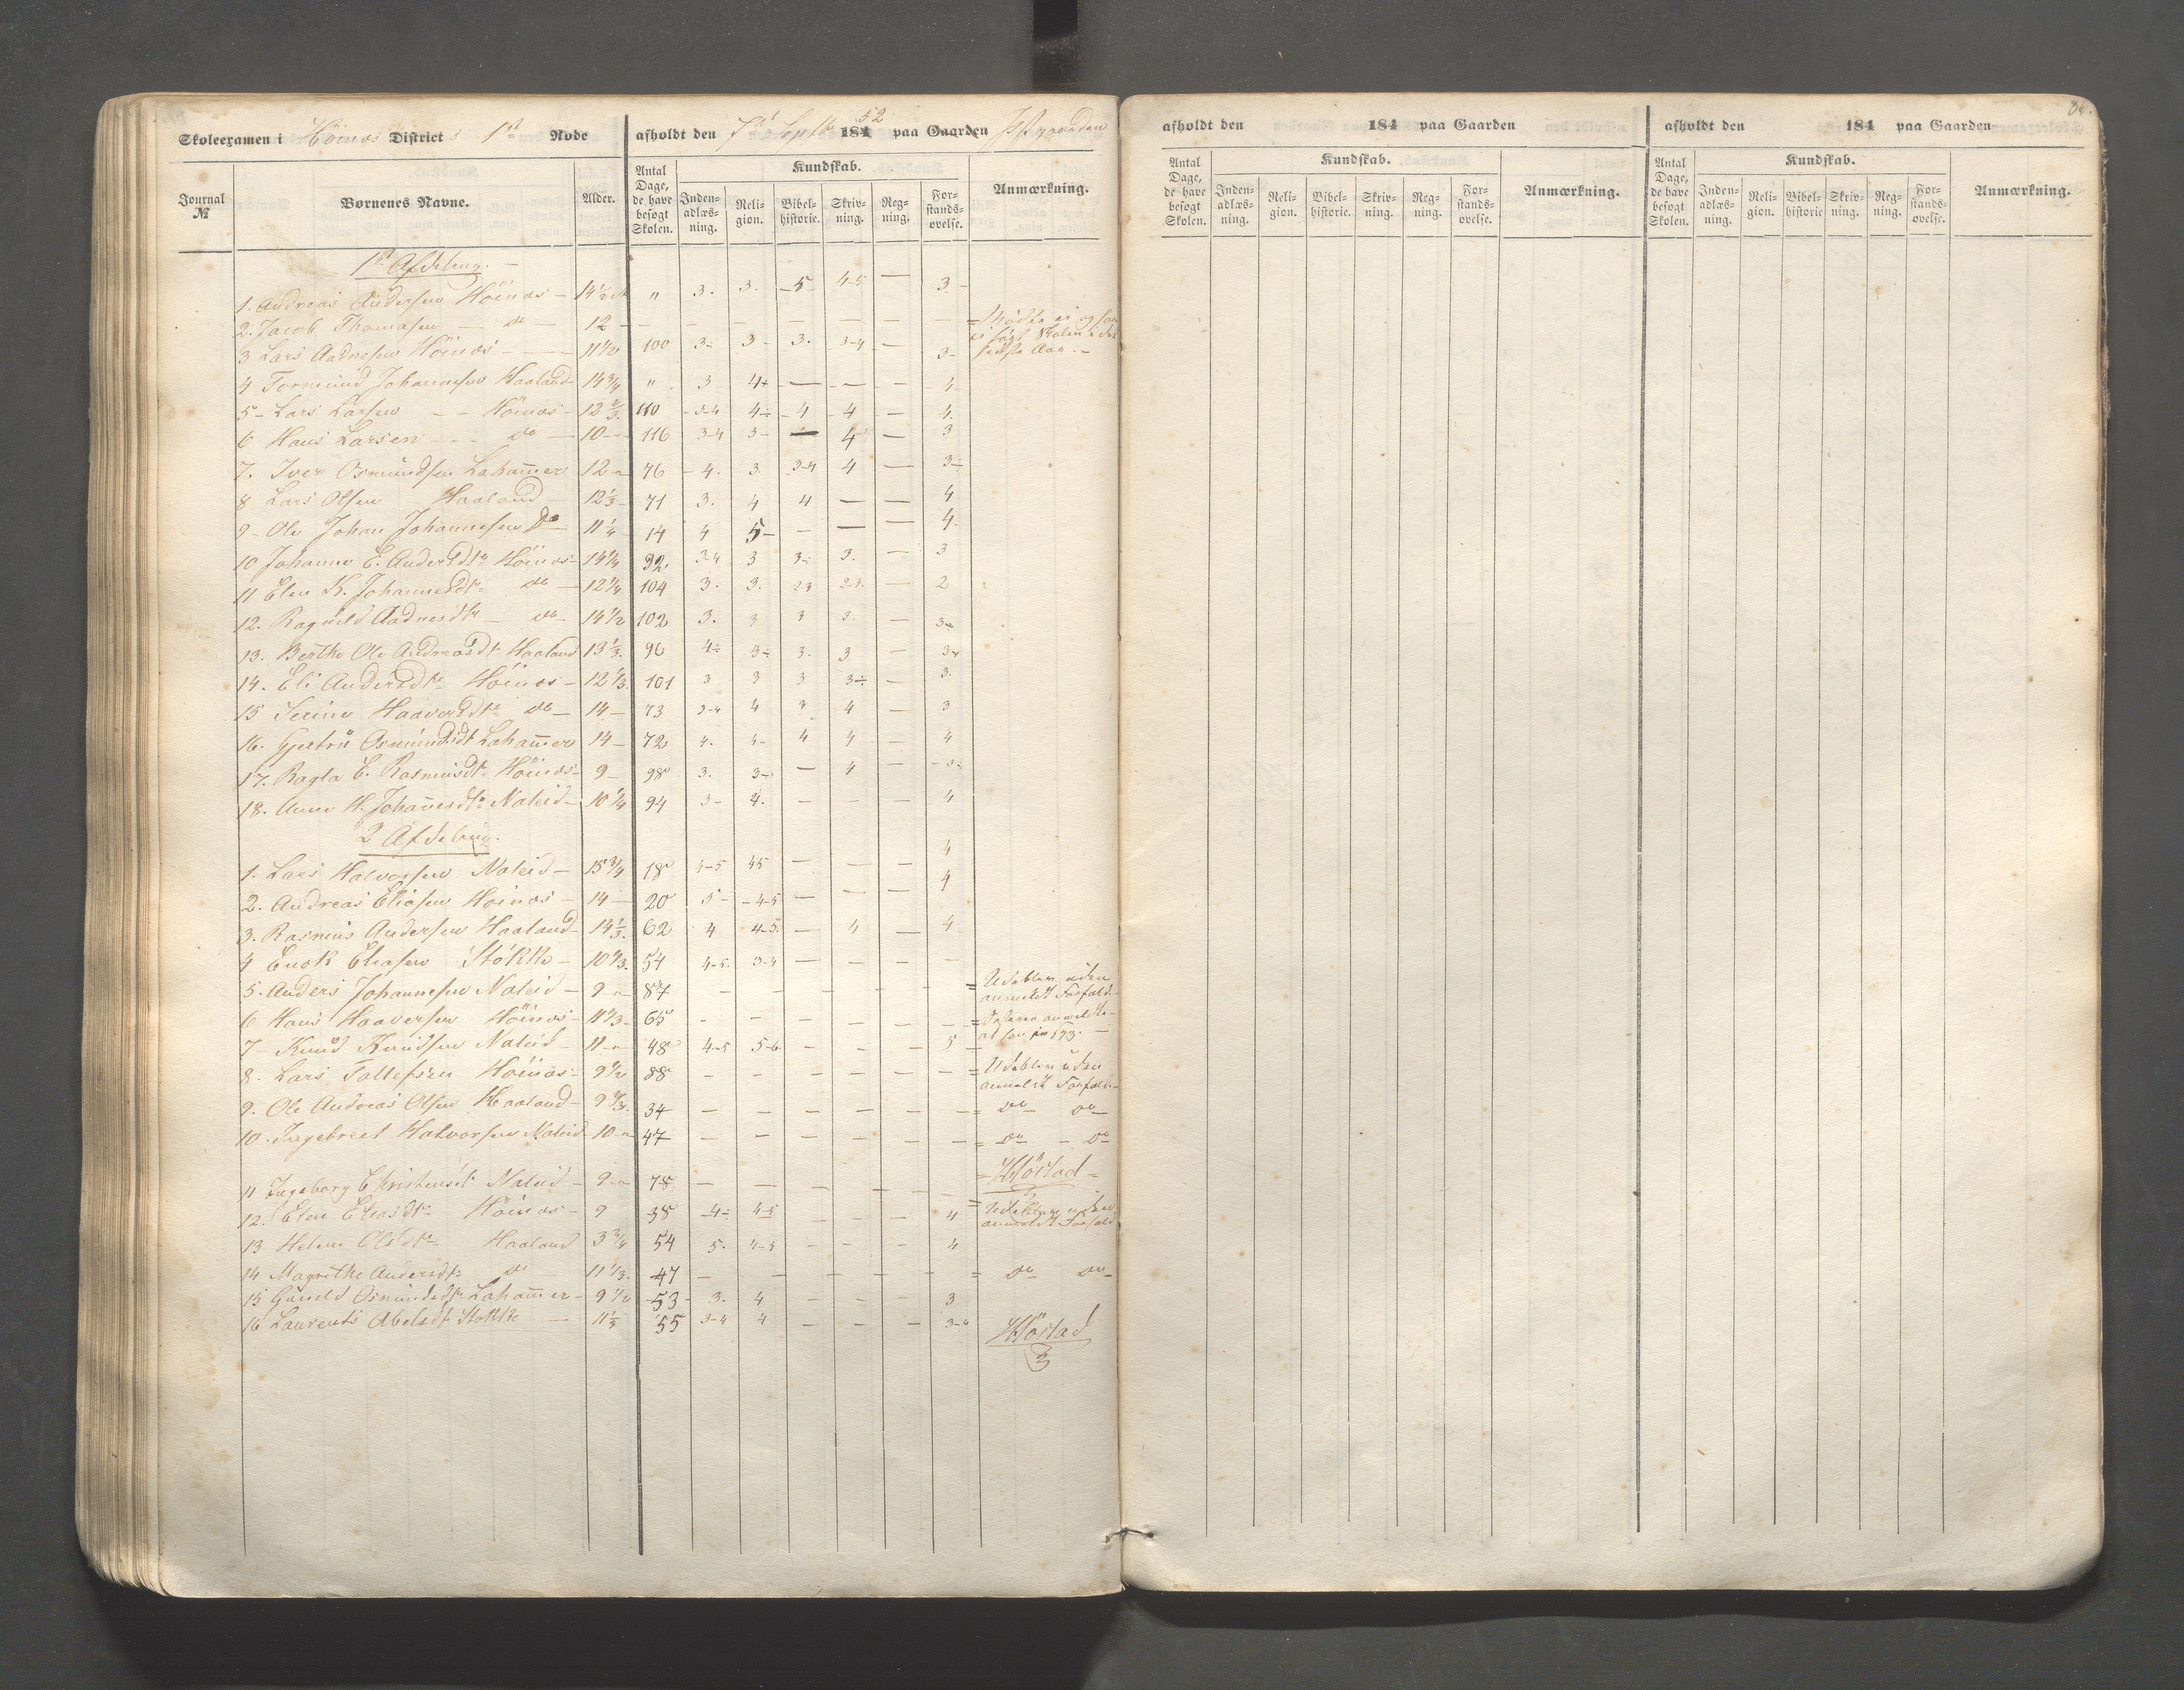 Skoleexamen i Höinæs District's 1ste Rode afholdt den 7de Septbr 1852 paa Gaarden
Journal № Børnenes Navne. Alder. Antal Dage, de have besøgt Skolen. Kundskab. Anmærkning.
Inden-adlæs-ning. Reli-gion. Bibel-historie. Skriv-ning. Reg-ning. For-stands-øvelse.
1ste Afdeling.
1. Andreas Andersen Höinæs 14 1/2 " 3. 3. 5 4-5 — 3
2. Jacob Thomasen do 12 — — — — — —
3 Lars Aadnesen Höinæs 11 1/2 100 3÷ 3 3. 3-4 — 3
4 Tormund Johannesen Haaland 14 3/4 " 3 4+ — — — 4
5 Lars Larsen Höinæs 12 2/3 110 3-4 4÷ 4 4 — 4
6 Hans Larsen do 10 116 3-4 3 — 4 — 3
7. Iver Osmundsen Lahammer 12 76 4. 3 3-4 4 — 3÷
8 Lars Olsen Haaland 12 1/3 71 3. 4 4 — — 4
9 Ole Johan Johannesen Do 11 1/4 14 4 5 — — — 4.
10 Johanne E. Andersdtr Höinæs 14 1/4 92 3-4 3 3÷ 3. — 3
11 Elen K. Johannesdtr do 12 1/4 104 3. 3. 2-3 2-3. — 2
12. Ragnild Aadnesdtr do 14 1/2 102 3. 3 3 3. — 3
13. Berthe Ole Andreasdtr Haaland 13 1/3 96 4÷ 3÷ 3. 3 — 3
14. Eli Andersdtr Höinæs 12 1/3 101 3 3 3 3÷ — 3.
15 Serine Haaversdtr do 14 73 3-4 4 3 4 — 3
16. Gjertru Osmundsdt Lahammer 14 72 4. 4 4 4 — 4
17. Ragla E. Rasmusdtr Höinæs 9 98 3. 3 — 4 — 3
18. Anne H. Johannesdtr Naleid 10 1/4 94 3 4. — — — 4
2 Afdeling.
1. Lars Halvorsen Naleid 15 3/4 18 4-5 4-5 — — — 4
2. Andreas Eliasen Höinæs 14 20 5 4-5 — — — 4
3. Rasmus Andersen Haaland 14 1/3 62 4 4-5. — 4 — 4
4 Enok Eliasen Stokke 10 1/3 54 4-5 3-4 — — — —
5. Anders Johannesen Naleid 9 87 — — — — — — Udebleven uden anmeldt Forfald
6 Hans Haaversen Höinæs 11 1/3 65 — — — — — —
7 Knud Knudsen Naleid 11 48 4-5 5-6 — — — 5
8. Lars Tollefsen Höinæs 9 1/2 88 — — — — — — Udebleven uden anmeldt Forfald
9. Ole Andreas Olsen Haaland 9 34 — — — — — — do do
10. Ingebreet Halvorsen Naleid 10 47 — — — — — — Do Do
11 Ingeborg Christensdt Naleid 9 78 — — — — — —
12. Elen Eliasdtr Höinæs 9 38 4÷ 4-5 — — — 4 Udebleven uden anmeldt Forfald
13 Helene Olsdtr Haaland 54 5. 4-5 — — — 4
14 Magrethe Andersdtr do 11 1/3 47 — — — — — — Do Do
15 Gunild Osmundsdtr Lahammer 9 1/2 53 3. 4 — — — 3
16 Laurents Abelsdt Stokke 11 1/3 55 3-4 4 — — — 3-4
afholdt den 184 paa Gaarden afholdt den 184 paa Gaarden
Antal Dage, de have besøgt Skolen. Kundskab. Anmærkning. Antal Dage, de have besøgt Skolen. Kundskab. Anmærkning.
Inden-adlæs-ning. Reli-gion. Bibel-historie. Skriv-ning. Reg-ning. For-stands-øvelse. Inden-adlæs-ning. Reli-gion. Bibel-historie Skriv-ning. Reg-ning. For-stands-øvelse.